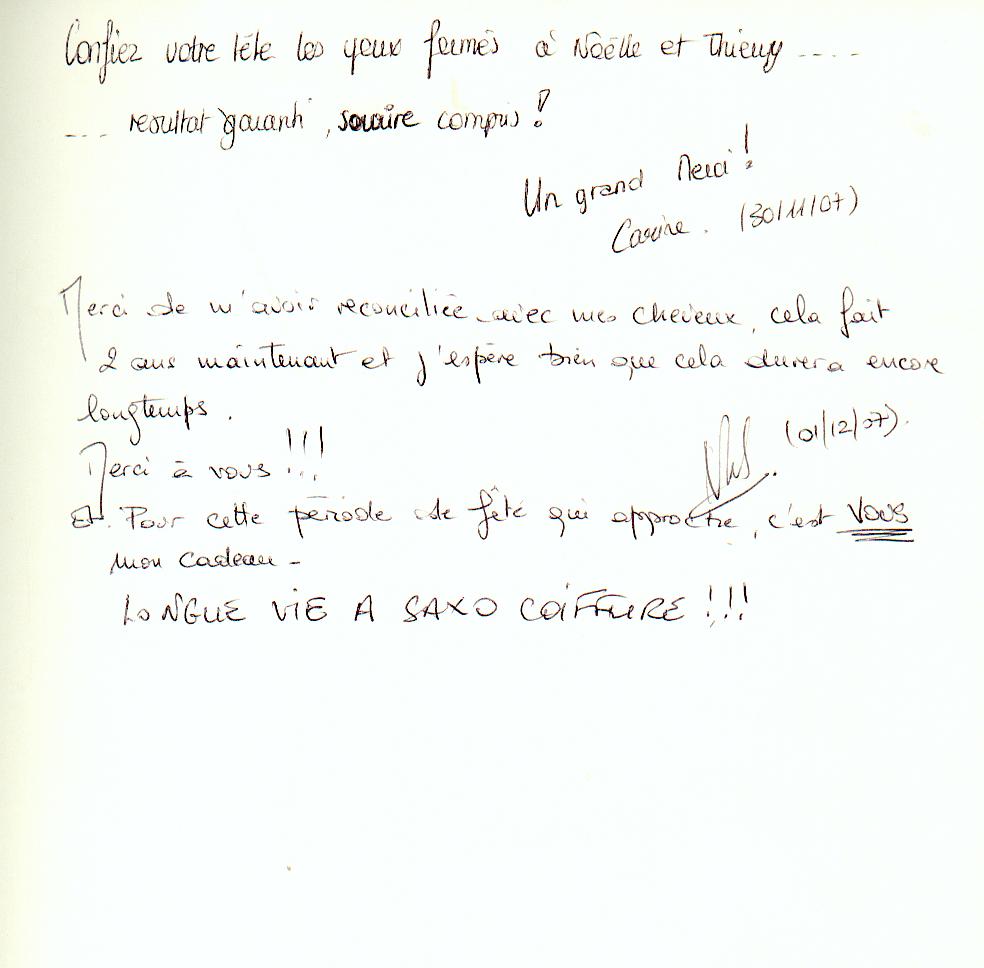 Confiez votre tête les yeux fermés à Noëlle et Thierry ....
... resultat garanti, sourire compris !
Un grand Merci !
Carine. (30/11/07)
Merci de m'avoir reconciliée avec mes cheveux, cela fait
2 ans maintenant et j'espère bien que cela durera encore
longtemps.
(01/12/07).
Merci à vous !!!
Et. Pour cette période de fête qui approche, c'est VOUS
mon cadeau -
LONGUE VIE A SAXO COIFFURE !!!